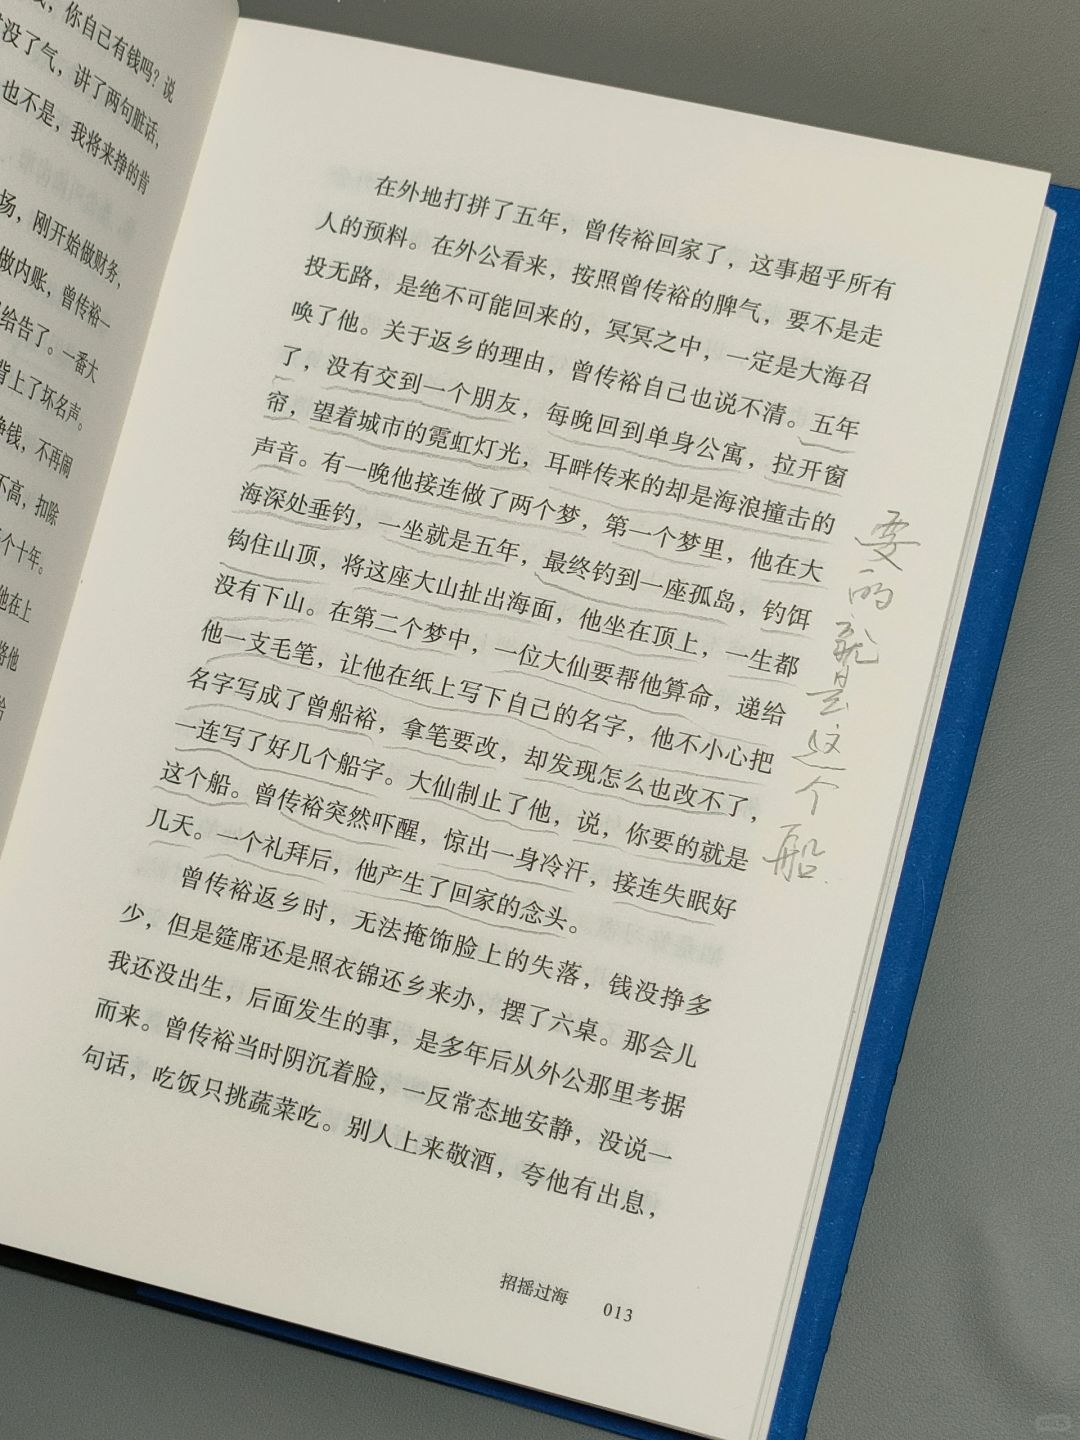 你自己有钱吗？说
没了气，讲了两句脏话，
也不是，我将来挣的肯
场，刚开始做财务，
做内账，曾传裕一
给告了。一番大
背上了坏名声。
挣钱，不再闹
不高，扣除
个十年。
他在上
将他
给
在外地打拼了五年，曾传裕回家了，这事超乎所有
人的预料。在外公看来，按照曾传裕的脾气，要不是走
投无路，是绝不可能回来的，冥冥之中，一定是大海召
唤了他。关于返乡的理由，曾传裕自己也说不清。五年
了，没有交到一个朋友，每晚回到单身公寓，拉开窗
帘，望着城市的霓虹灯光，耳畔传来的却是海浪撞击的
声音。有一晚他接连做了两个梦，第一个梦里，他在大
海深处垂钓，一坐就是五年，最终钓到一座孤岛，钓饵
钩住山顶，将这座大山扯出海面，他坐在顶上，一生都
没有下山。在第二个梦中，一位大仙要帮他算命，递给
他一支毛笔，让他在纸上写下自己的名字，他不小心把
名字写成了曾船裕，拿笔要改，却发现怎么也改不了，
一连写了好几个船字。大仙制止了他，说，你要的就是
这个船。曾传裕突然吓醒，惊出一身冷汗，接连失眠好
几天。一个礼拜后，他产生了回家的念头。
曾传裕返乡时，无法掩饰脸上的失落，钱没挣多
少，但是筵席还是照衣锦还乡来办，摆了六桌。那会儿
我还没出生，后面发生的事，是多年后从外公那里考据
而来。曾传裕当时阴沉着脸，一反常态地安静，没说一
句话，吃饭只挑蔬菜吃。别人上来敬酒，夸他有出息，
要的就是这个船.
招摇过海 013